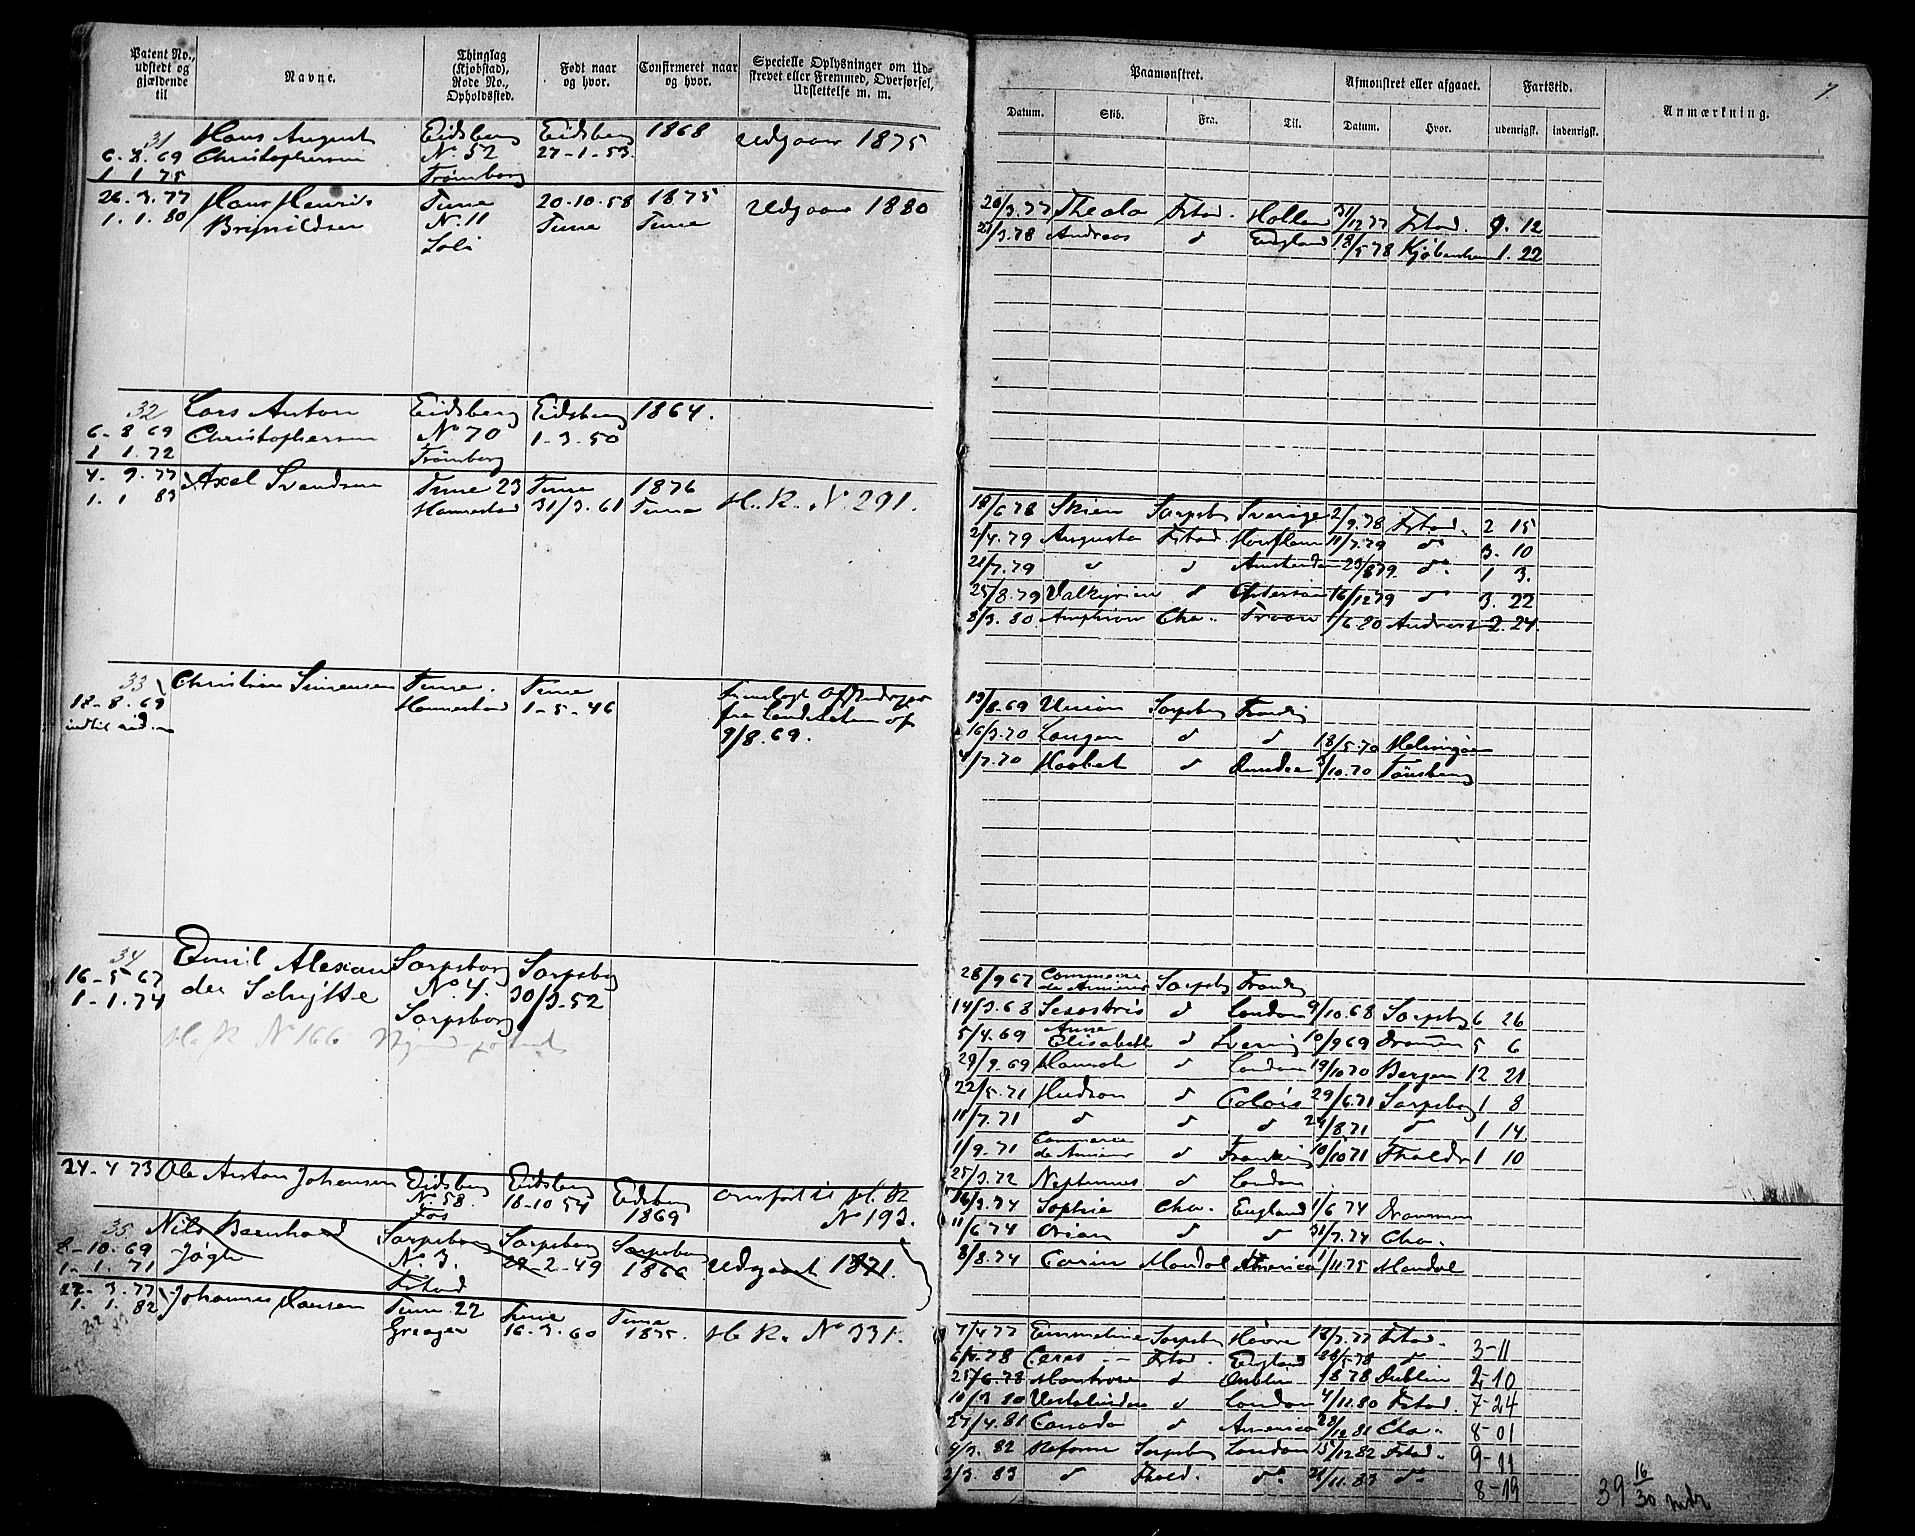 Patent No., udstedt og gjældende til
Navne.
Thinglag (Kjøbstad), Rode No., Opholdssted.
Født naar og hvor.
Confirmeret naar og hvor.
Specielle Oplysninger om Udskrevet eller Fremmed, Overførsel, Udslettelse m. m.
31 Hans August Eidsberg Eidsberg 1868 Udgaar 1875
6-8.69 Christophersen No. 52 27-1-53.
1 1 75 Trømborg
26.3.77 Hans Henrik Tune 20-10-58 1875 Udgaar 1880
1.1.80 Brynildsen No. 11 Tune Tune
Soli
32 Lars Anton Eidsberg Eidsberg 1864.
6-8 69 Christophersen No 70 1-3-50
1 1.72 Trømborg
4-9.77 Axel Svendsen Tune 23 Tune 1876 H.R. No 291.
1.1 83 Hannestad 31/3.61 Tune
33 Christian Simensen Tune. Tune
12-8.69 Hannestad 1-5-46
fra
9/8.69.
34 Emil Alexan Sarpsborg Sarpsborg
16-5-67 der Schytte No. 4. 30/3-52
1-1.74 Sarpsborg
H.R No 166
24-4 73 Ole Anton Johansen Eidsberg Eidsberg Eidsberg Overført til H.R
No. 58. 18-10 54 1869 No 193.
35 Nils Bernhard Sarpsborg Sarpsborg Sarpsborg Udgaaet 1871.
8-10.69 No. 3. 2-49 1866
1-1.71 Fstad
22-3.77 Johannes Hansen Tune 22 Tune Tune H.R. No 331.
1.1.82 16-3.60 1875.
7
Paamønstret.
Afmønstret eller afgaaet.
Fartstid.
Anmærkning.
Datum. Skib. Fra. Til. Datum. Hvor. udenrigsk. indenrigsk.
20/3.77 Theda Fstad. Holland 31/12 77 Fstad. 9. 12
/3.78 Andreas d England 18/5 78 Kjøbenhavn 1. 22
18/6 78 Skien Sarpsb Sverige 2/9.78 Fstad. 2 15
2/4.79 Augusta Fstad 11/7.79 do 3. 10
21/7.79 d d Amsterdam 23/8 79. do 1 3.
25/8.79 Valkyrien d 16/12 79 do 3. 22
8/3.80 Amphion Cha. Troon 1/6.80 2. 24.
13/8.69 Union Sarpsborg Frankrig
16/3.70 Laugen d d 18/5.70 Helsingør
4/7.70 Haabet d Dundee /10.70 Tønsberg
28/9 67 Commerce de Amiens Sarpsb Frankrig
14/3.68 Sesostris d London 9/10.68 Sarpsborg 6 26
5/4.69 Anne Elisabeth d Sverig 10/9 69 Drammen 5 6
29/9.69 Hannah d London 19/10 70 Bergen 12 21
22/5.71 Hudson d Calais 29/6.71 Sarpsborg 1 8
11/7.71 d d d 24/8 71 d 1 14
1/9.71 Commerce de Amiens d Frankrig 10/10 71 Fhald 1 10
25/3.72 Neptunus d London
16/3.74 Sophie Cha. England 1/6 74 Drammen
11/6 74 Orion d d 31/7.74 Cha.
8/8.74 Carin Mandal America 1/11 75 Mandal
7/4 77 Emmeline Sarpsb Havre 18/7.77 Fstad. 3-11
6/3.78 Ceres Fstad. England /5.78 d 2-10
25/6.78 Montrose d Dublin /8 78 Dublin
10/3 80 Vestalinden d London 4/11.80 Fstad. 7-24
27/4.81 Canada d America 28/12 81 Cha. 8-01
9/3. 82 Reform Sarpsborg London 15/12 82 Fstad. 9-11
2/3. 83 d Fhald. do 21/11.83 do 8-19
39 16/30 mdr